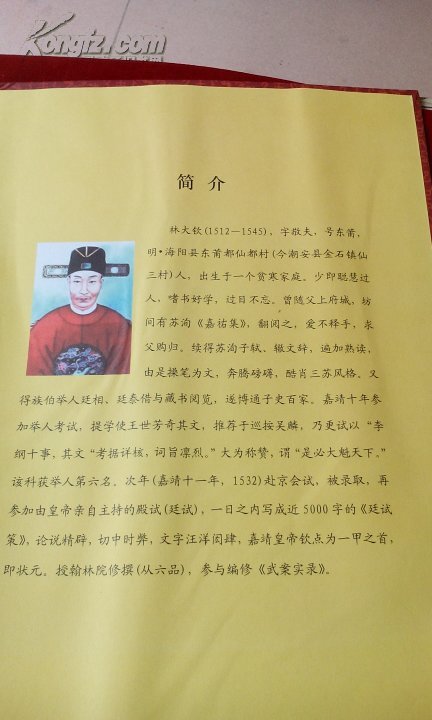 Kongfz.com
简 介
林大钦(1512—1545),字敬夫,号东莆、
明·海阳县东莆都仙都村(今潮安县金石镇仙
三村)人,出生于一个贫寒家庭。少即聪慧过
人,嗜书好学,过目不忘。曾随父上府城,坊
间有苏洵《嘉祐集》,翻阅之,爱不释手,求
父购归。续得苏洵子轼、辙文辞,遍加熟读,
由是操笔为文,奔腾磅礴,酷肖三苏风格。又
得族伯举人廷相、廷泰借与藏书阅览,遂博通子史百家。嘉靖十年参
加举人考试,提学使王世芳奇其文,推荐于巡按吴麟,乃更试以“李
纲十事,其文“考据详核,词旨凛烈。”大为称赞,谓“是必大魁天下。”
该科获举人第六名。次年(嘉靖十一年,1532)赴京会试,被录取,再
参加由皇帝亲自主持的殿试(廷试),一日之内写成近5000字的《廷试
策》,论说精辟,切中时弊,文字汪洋闳肆,嘉靖皇帝钦点为一甲之首,
即状元。授翰林院修撰(从六品),参与编修《武案实录》。